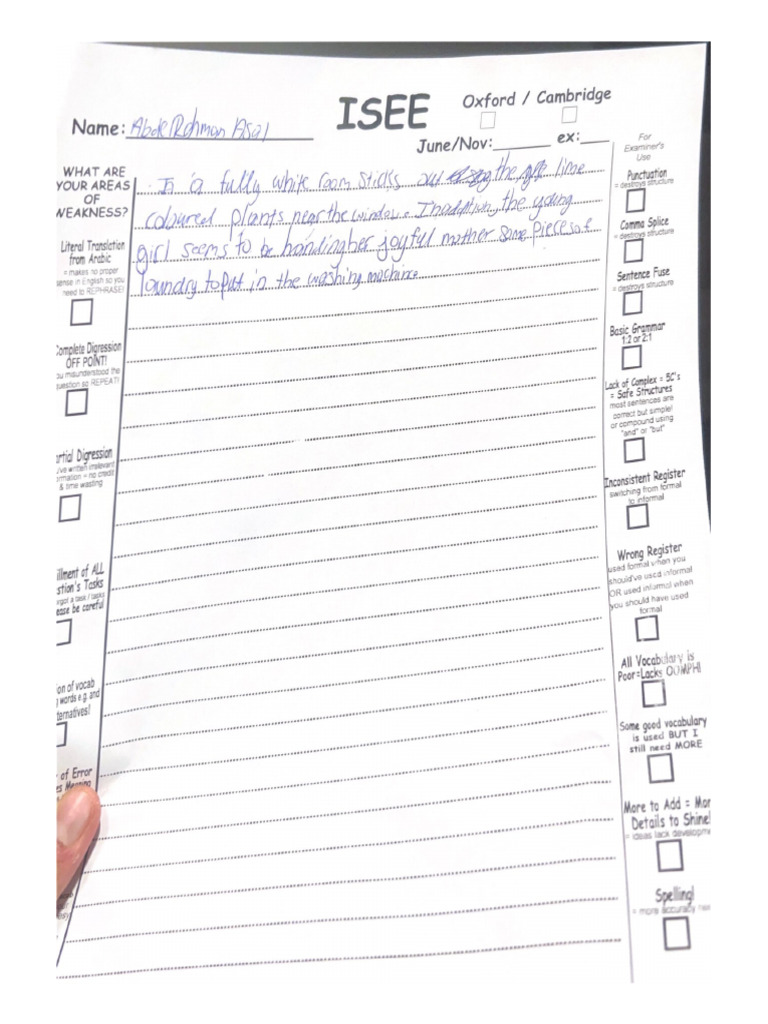 ISEE
Oxford / Cambridge
Name: AbdelRahman Asal
June/Nov: ex:
For
Examiner's
Use
WHAT ARE
YOUR AREAS
OF
WEAKNESS?
Literal Translation
from Arabic
= makes no proper
sense in English so you
need to REPHRASE!
Complete Digression
OFF POINT!
ou misunderstood the
question so REPEAT!
artial Digression
've written irrelevant
ormation = no credit
& time wasting
illment of ALL
stion's Tasks
rgot a task / tasks
ease be careful
ion of vocab
words e.g. and
ternatives!
of Error
In a fully white room sticks out the lime
coloured plants near the window. In addition, the young
girl seems to be handing her joyful mother some pieces of
laundry to put in the washing machine
Punctuation
= destroys structure
Comma Splice
= destroys structure
Sentence Fuse
= destroys structure
Basic Grammar
1:2 or 2:1
Lack of Complex = 5C's
= Safe Structures
most sentences are
correct but simple!
or compound using
"and" or "but"
Inconsistent Register
switching from formal
to informal
Wrong Register
used formal when you
should've used informal
OR used informal when
you should have used
formal
All Vocabulary is
Poor=Lacks OOMPH!
Some good vocabulary
is used BUT I
still need MORE
More to Add = Mor
Details to Shine!
= ideas lack developme
Spelling!
= more accuracy nee